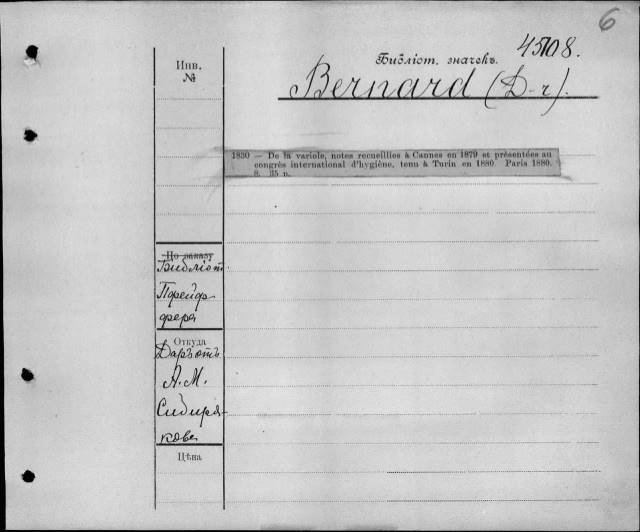 6
45108.
Инв.
№
Библіот. значекъ.
Bernard (D-r).
1830 — De la variole, notes recueillies à Cannes en 1879 et présentées au
congrès international d'hygiène, tenu à Turin en 1880. Paris 1880.
8. 35 p.
По заказу
Библіот.
Пфейф-
фера
Откуда
Даръ отъ
А. М.
Сибиря-
кова
Цѣна